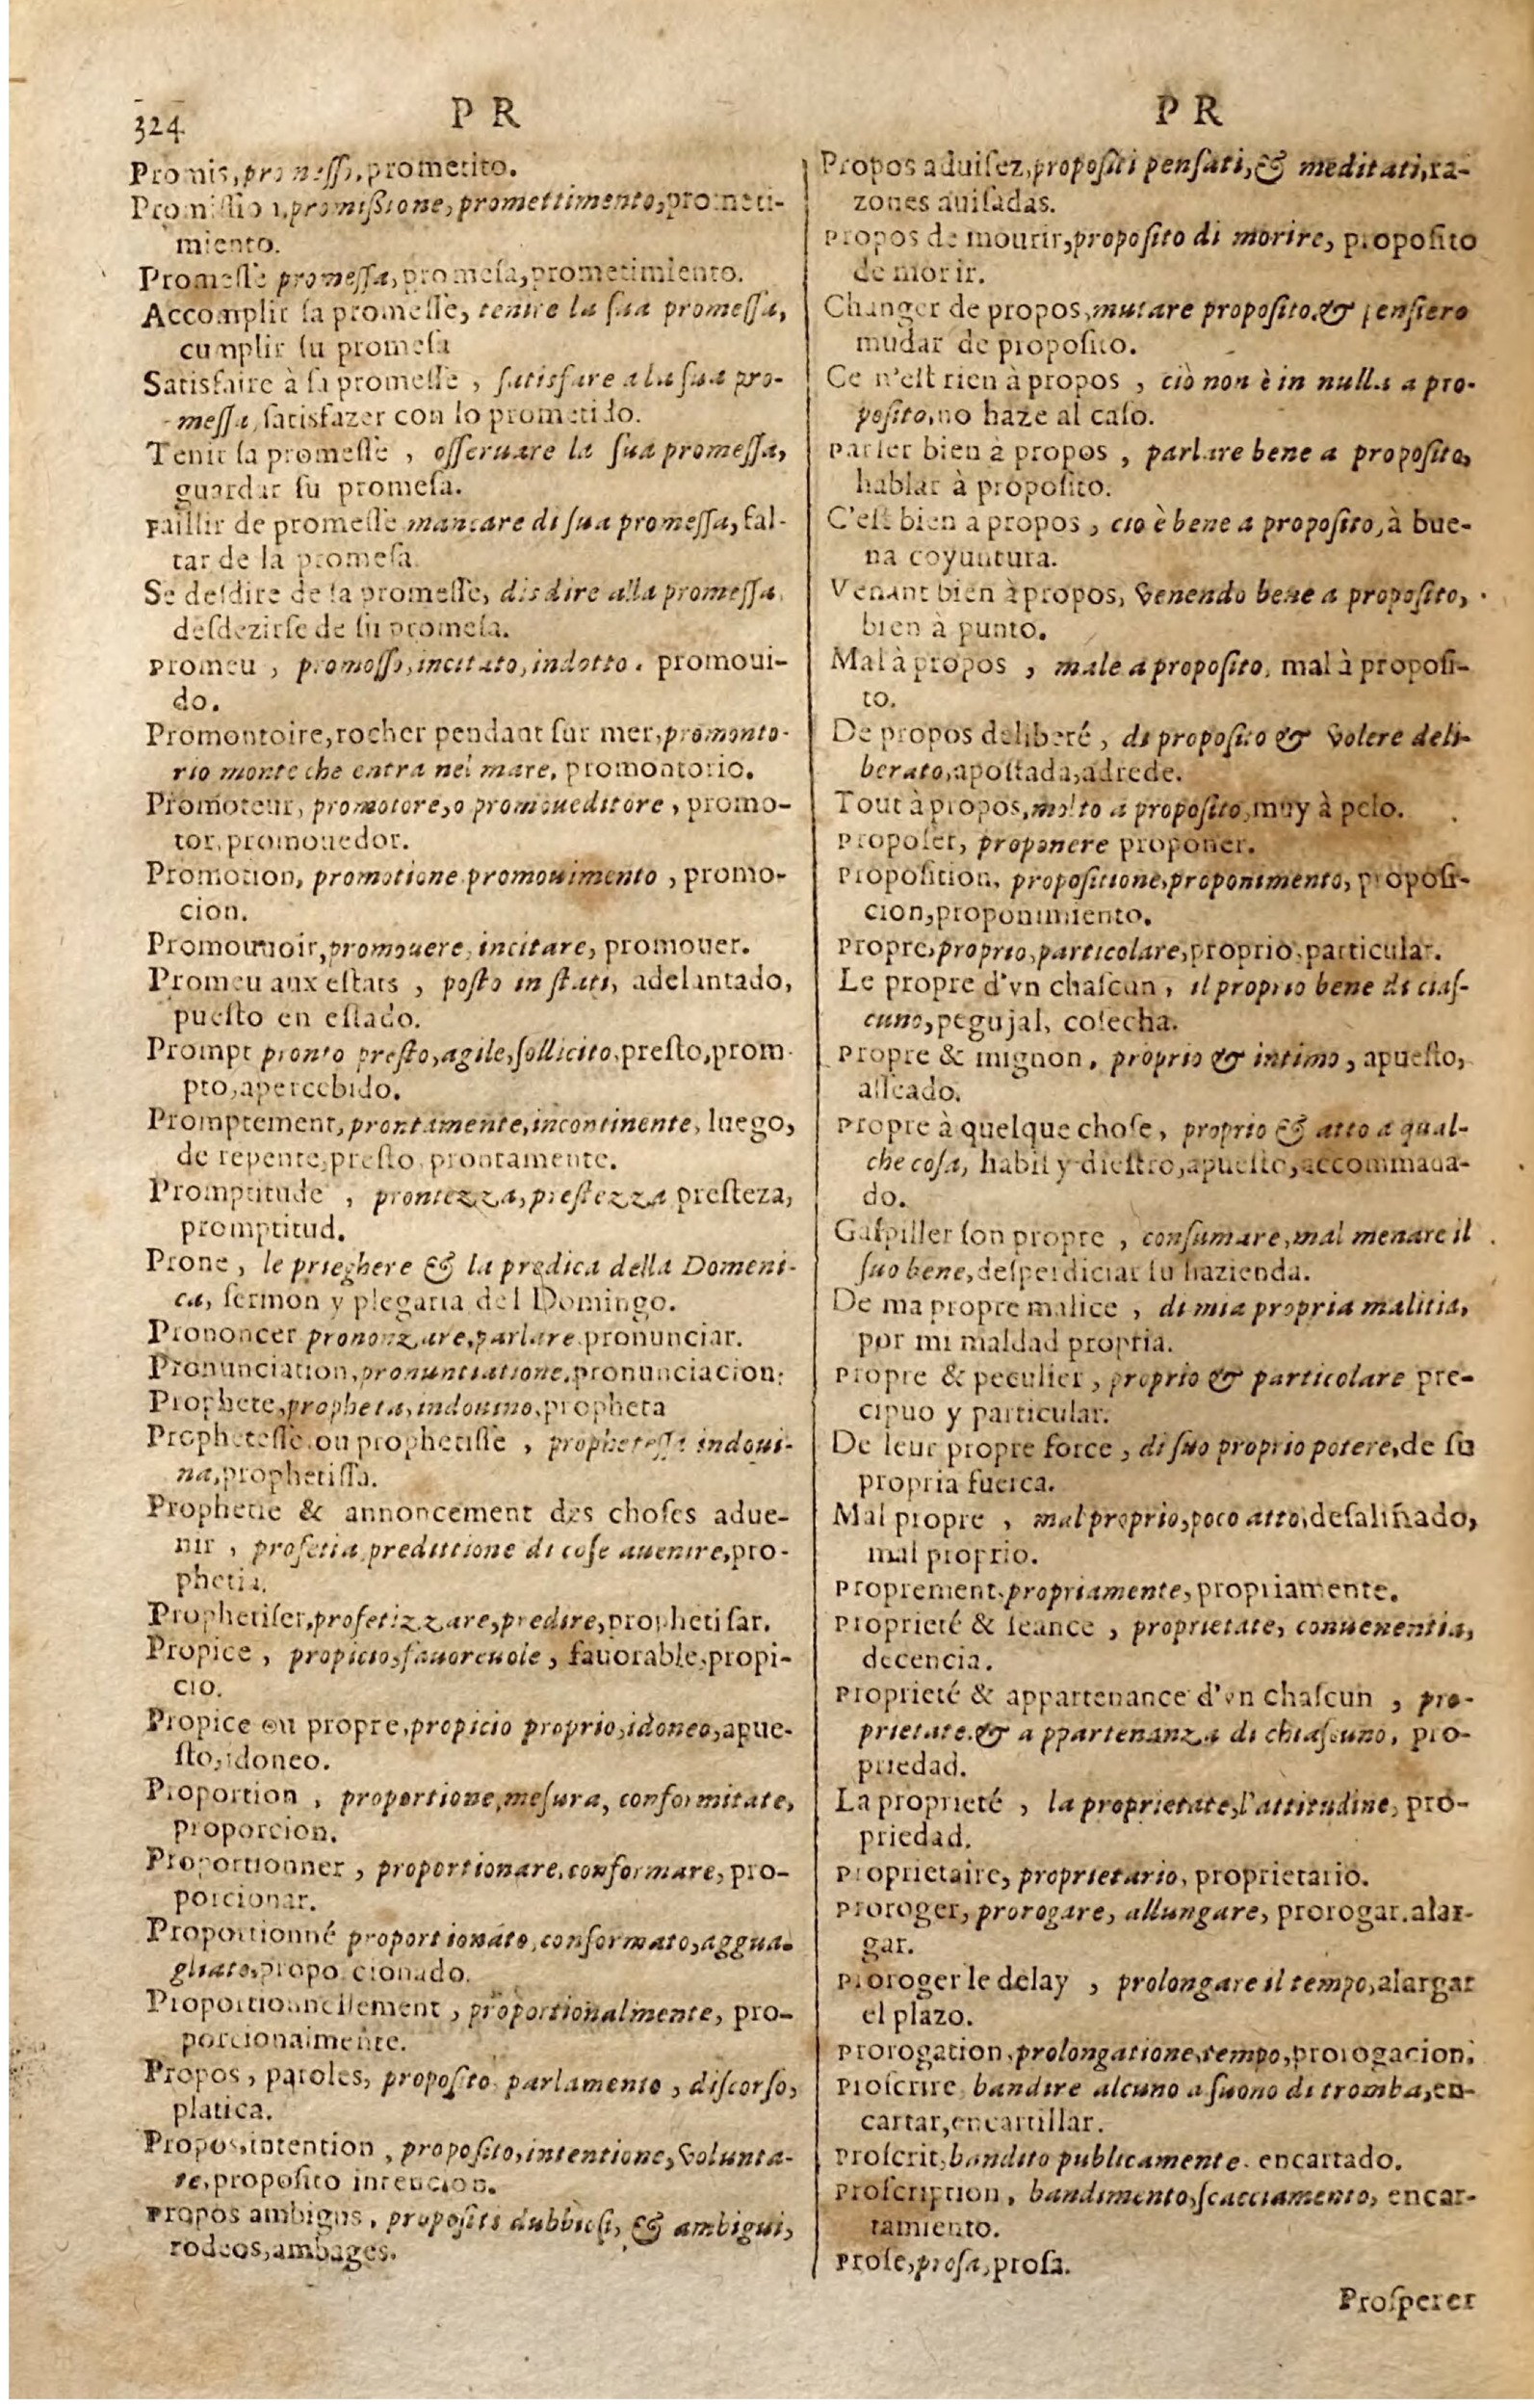 324
P R
Promis, promesso, prometito.
Promissio, promissione, promettimento, prometi-
miento.
Promesse promessa, promesa, prometimiento.
Accomplir sa promesse, tenire la sua promessa,
cumplir su promesa
Satisfaire à sa promesse, satisfare a la sua pro-
messa, satisfazer con lo prometido.
Tenir sa promesse, osseruare la sua promessa,
guardar su promesa.
Faillir de promesse mancare di sua promessa, fal-
tar de la promesa.
Se desdire de sa promesse, disdire alla promessa,
desdezirse de su promesa.
Promeu, promosso, incitato, indotto. promoui-
do.
Promontoire, rocher pendant sur mer, promonto-
rio monte che entra nel mare, promontorio.
Promoteur, promotore, o promoueditore, promo-
tor, promouedor.
Promotion, promotione promouimento, promo-
cion.
Promouuoir, promouere, incitare, promouer.
Promeu aux estats, posto in stati, adelantado,
puesto en estado.
Prompt pronto presto, agile, sollicito, presto, prom-
pto, apercebido.
Promptement, prontamente, incontinente, luego,
de repente, presto, prontamente.
Promptitude, prontezza, prestezza presteza,
promptitud.
Prone, le prieghere & la predica della Domeni-
ca, sermon y plegaria del Domingo.
Prononcer prononzare, parlare pronunciar.
Pronunciation, pronuntiatione, pronunciacion.
Prophete, propheta, indouino, propheta
Prophetesse ou prophetisse, prophetessa indoui-
na, prophetissa.
Prophetie & annoncement des choses adue-
nir, profetia, predittione di cose auenire, pro-
phetia.
Prophetiser, profetizzare, predire, prophetisar.
Propice, propicio, fauoreuole, fauorable, propi-
cio.
Propice ou propre, propicio proprio, idoneo, apue-
sto, idoneo.
Proportion, proportione, mesura, conformitate,
proporcion.
Proportionner, proportionare, conformare, pro-
porcionar.
Proportionné proportionato, conformato, aggua-
gliato, proporcionado.
Proportionnellement, proportionalmente, pro-
porcionalmente.
Propos, paroles, proposito parlamento, discorso,
platica.
Propos, intention, proposito, intentione, volunta-
te, proposito intencion.
Propos ambigus, propositi dubbiosi, & ambigui,
rodeos, ambages.
P R
Propos aduisez, propositi pensati, & meditati, ra-
zones auisadas.
Propos de mourir, proposito di morire, proposito
de morir.
Changer de propos, mutare proposito, & pensiero
mudar de proposito.
Ce n'est rien à propos, ciò non è in nulla a pro-
posito, no haze al caso.
Parler bien à propos, parlare bene a proposito,
hablar à proposito.
C'est bien a propos, cio è bene a proposito, à bue-
na coyuntura.
Venant bien à propos, venendo bene a proposito,
bien à punto.
Mal à propos, male a proposito, mal à proposi-
to.
De propos deliberé, di proposito & volere deli-
berato, apostada, adrede.
Tout à propos, molto a proposito, muy à pelo.
Proposer, proponere proponer.
Proposition, propositione, proponimento, proposi-
cion, proponimiento.
Propre, proprio, particolare, proprio, particular.
Le propre d'vn chascun, il proprio bene di cias-
cuno, pegujal, cosecha.
Propre & mignon, proprio & intimo, apuesto,
asseado.
Propre à quelque chose, proprio & atto a qual-
che cosa, habil y diestro, apuesto, accommada-
do.
Gaspiller son propre, consumare, mal menare il
suo bene, desperdiciar su hazienda.
De ma propre malice, di mia propria malitia,
por mi maldad propria.
Propre & peculier, proprio & particolare pre-
cipuo y particular.
De leur propre force, di suo proprio potere, de su
propria fuerca.
Mal propre, mal proprio, poco atto, desaliñado,
mal proprio.
Proprement, propriamente, propriamente.
Proprieté & seance, proprietate, conuenentia,
decencia.
Proprieté & appartenance d'vn chascun, pro-
prietate, & appartenanza di chiascuno, pro-
priedad.
La proprieté, la proprietate, l'attitudine, pro-
priedad.
Proprietaire, proprietario, proprietario.
Proroger, prorogare, allungare, prorogar, alar-
gar.
Proroger le delay, prolongare il tempo, alargar
el plazo.
Prorogation, prolongatione, tempo, prorogacion.
Proscrire, bandire alcuno a suono di tromba, en-
cartar, encartillar.
Proscrit, bandito publicamente. encartado.
Proscription, bandimento, scacciamento, encar-
tamiento.
Prose, prosa, prosa.
Prosperer